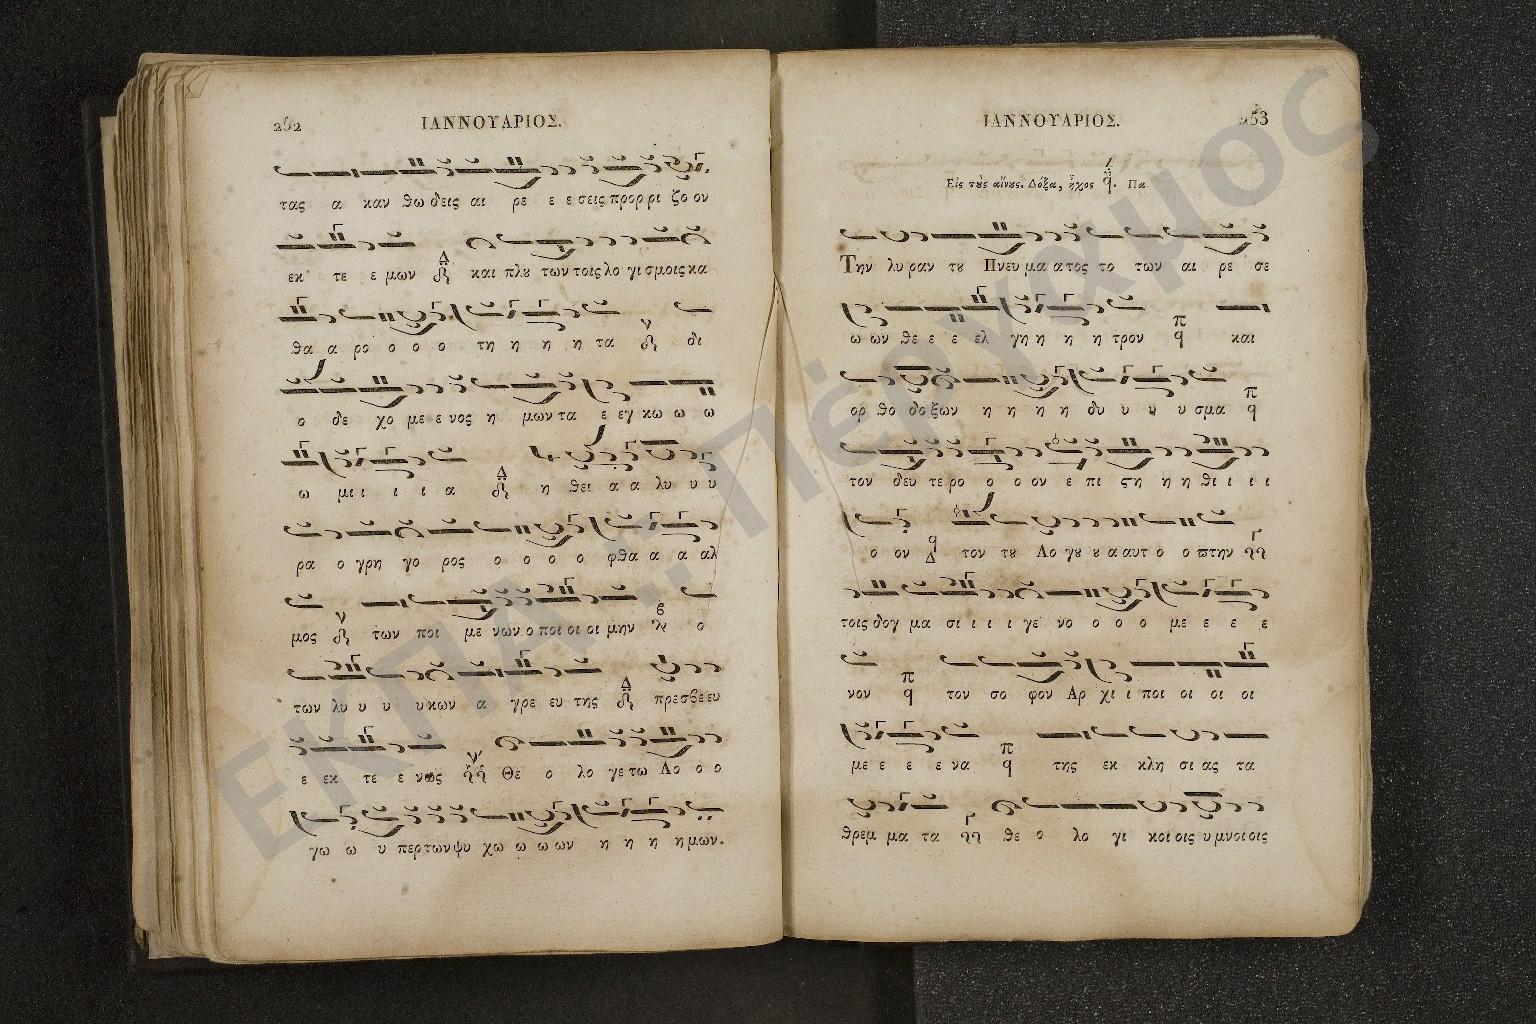 252 ΙΑΝΝΟΥΑΡΙΟΣ.
τας α καν θω δεις αι ρε ε ε σεις προρ ρι ζο ον
εκ τε ε μων Δ και πλȣ των τοις λο γι σμοις κα
θα α ρο ο ο ο τη η η η τα ν δι
ο δε χο με ε νος η μων τα ε εγ κω ω ω
ω μι ι ι ι α Δ η θει α α λυ υ υ
ρα ο γρη γο ρος ο ο ο ο φθα α α αλ
μος ν των ποι με νων ο ποι οι οι μην ο
των λυ υ υ υκων α γρε ευ της Δ πρεσβε ευ
ε εκ τε ε νως Θε ο λο γε τω Λο ο ο
γω ω υ περ των ψυ χω ω ω ων η η η ημων.
ΙΑΝΝΟΥΑΡΙΟΣ. 253
Εἰς τȣ̀ς αἴνȣς. Δόξα, ἦχος Πα
Την λυ ραν τȣ Πνευ μα α τος το των αι ρε σε
ω ων θε ε ε ελ γη η η η τρον π και
ορ θο δο ξων η η η η δυ υ υ υ σμα π
τον δευ τε ρο ο ο ον ε πι ςη η η θι ι ι ι
ο ον τον τȣ Λο γȣ ȣ α αυτ ο ο πτην
τοις δογ μα σι ι ι ι γε νο ο ο ο με ε ε ε
νον π τον σο φον Αρ χι ι ποι οι οι οι
με ε ε ε να π της εκ κλη σι ας τα
θρεμ μα τα θε ο λο γι κοι οις υ μνοι οις
ΕΚΠΑ:: Πέργαμος